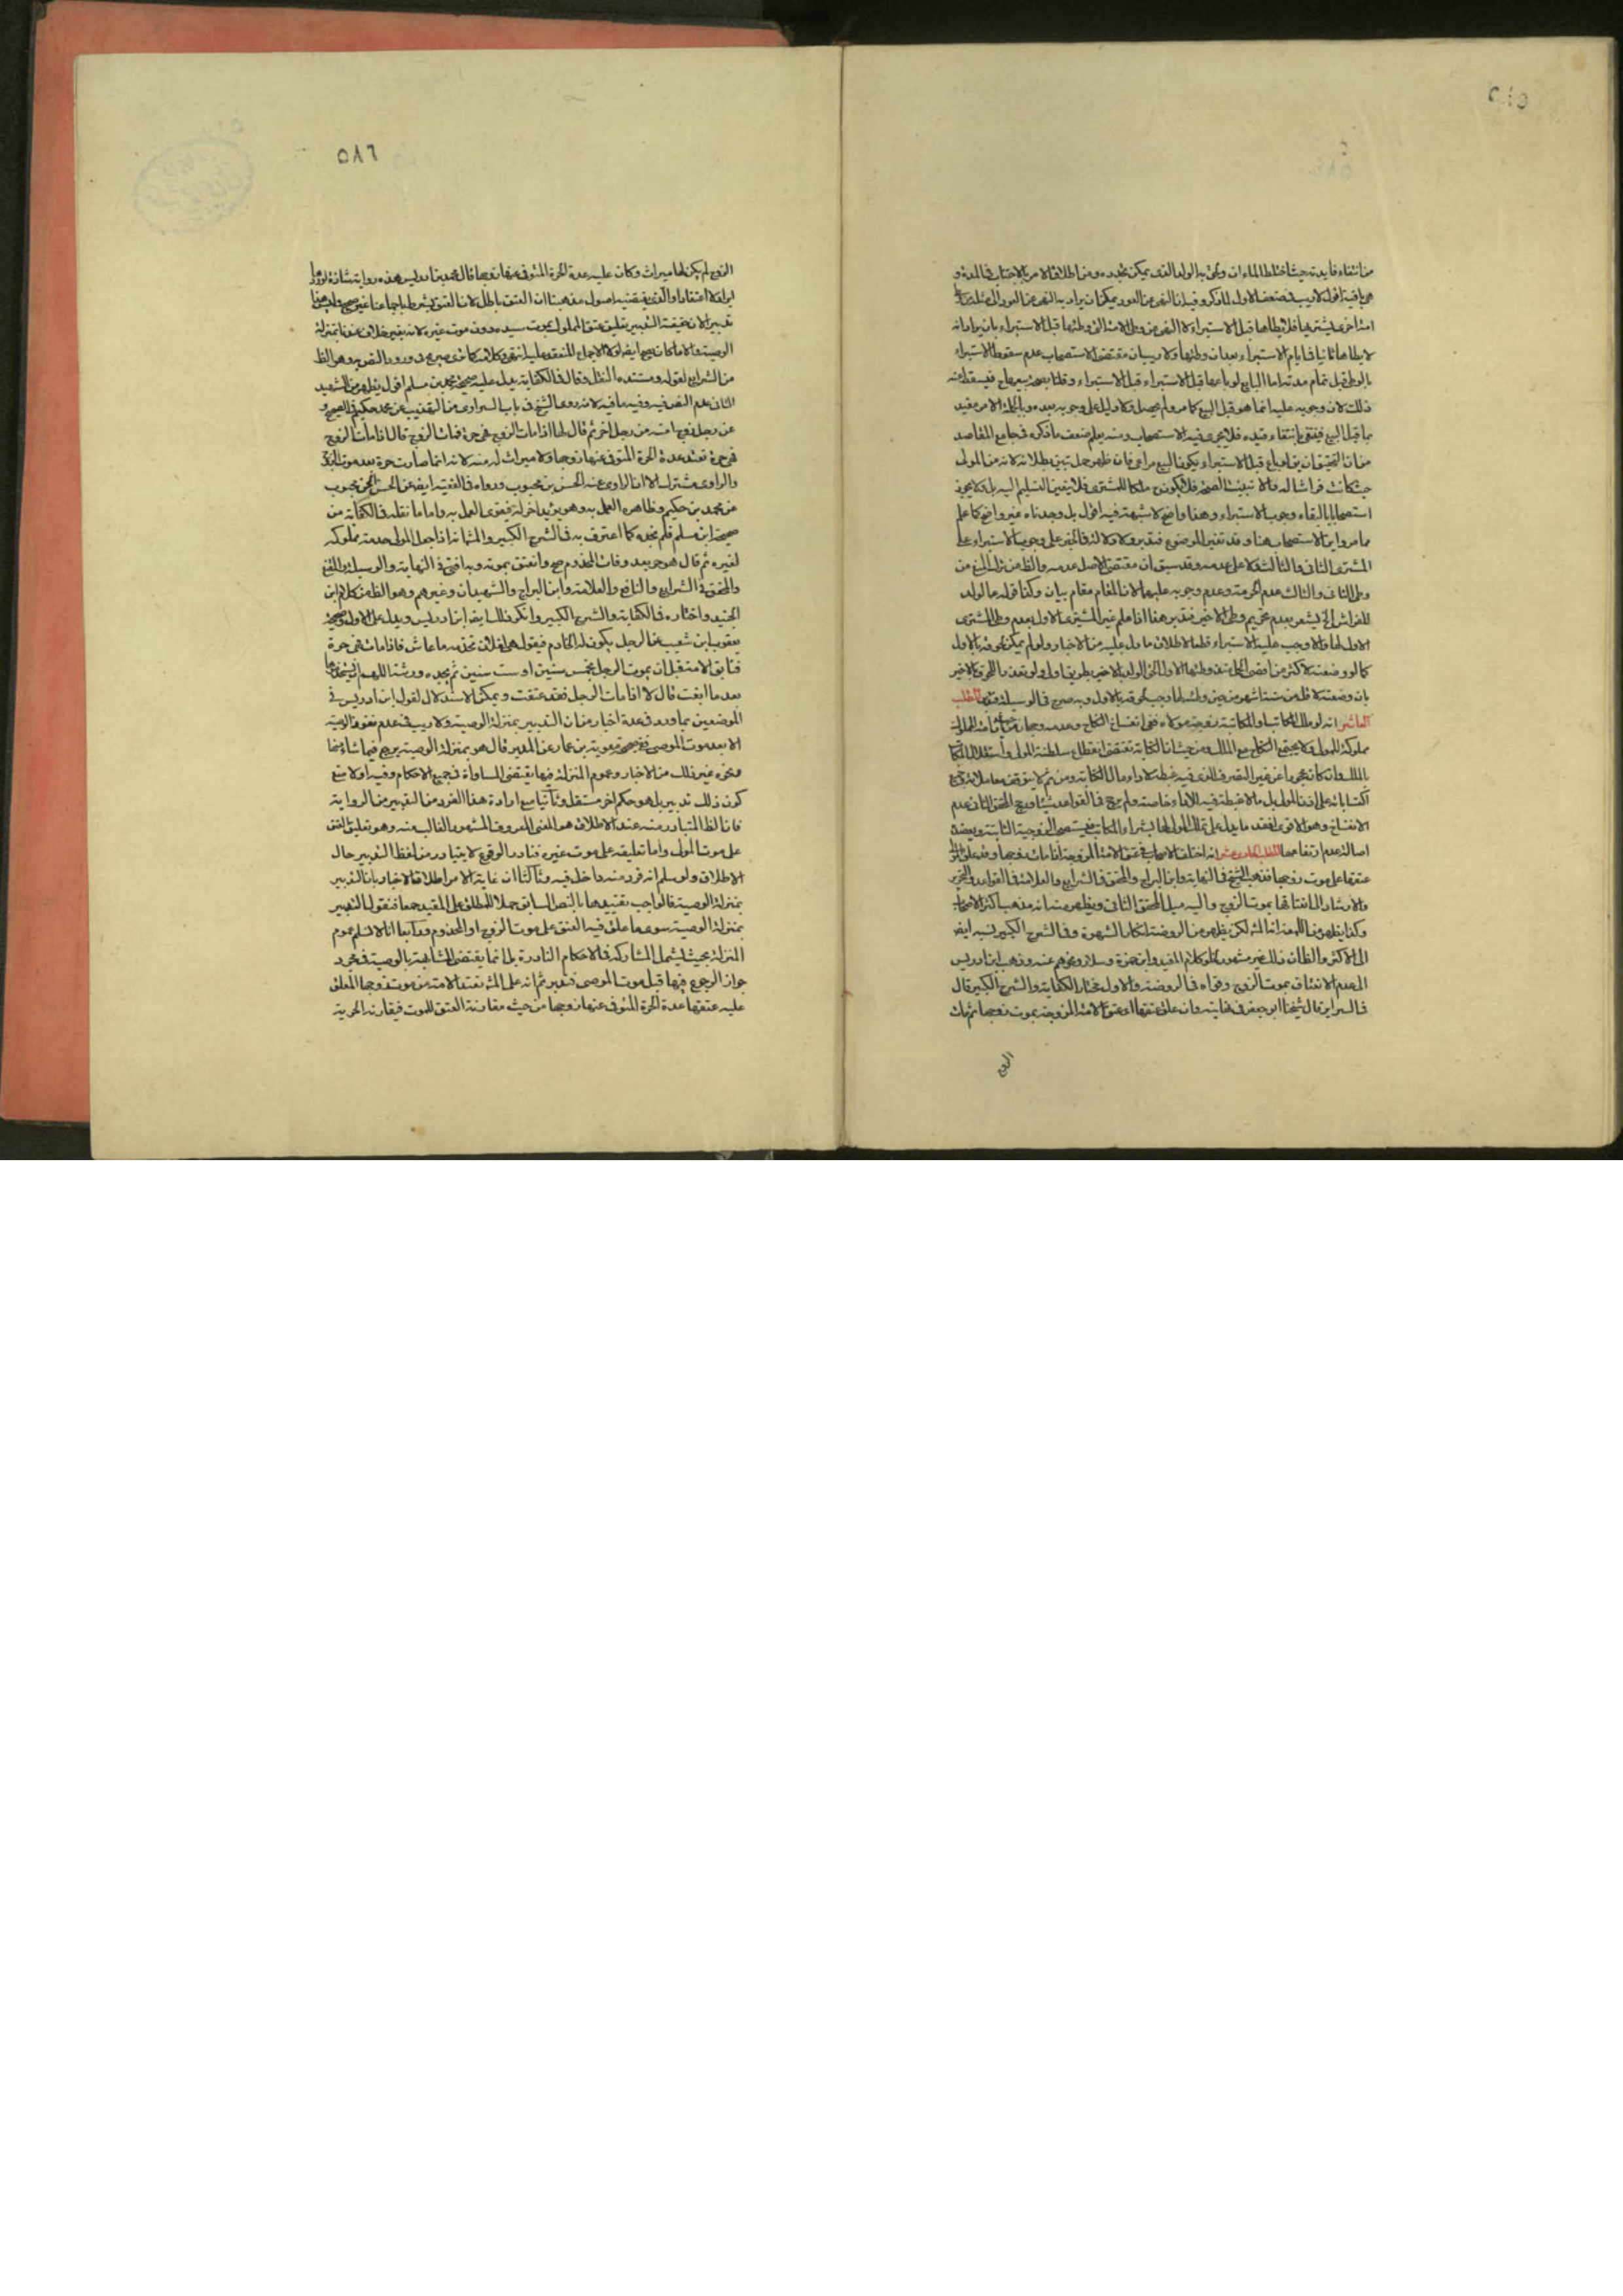 ٥٨٥
من انتفاء فايدته حيث اختلط الماءان ولحق به الولد الذى يمكن تجدده ومن اطلاق الامر بالاجتناب فى المدة و
هى باقية اقول لا ريب فى ضعف الاول المذكر وقيل ان النهى عن العود يمكن ان يراد به النهى عن العود الى مثله
امة اخرى يشتريها فلا يطأها قبل الاستبراء لا النهى عن وطى الامة التى وطئها قبل الاستبراء بان يراد انه
لا يطاها ثانيا فى ايام الاستبراء بعد ان وطئها ولا ريب ان مقتضى الاستصحاب عدم سقوط الاستبراء
بالوطى قبل تمام مدته اما البايع لو باعها قبل الاستبراء قبل الاستبراء وقلنا بصحة بيعها ح فيسقط عنه
ذلك لان وجوبه عليه انما هو قبل البيع كما مر ولم يحصل ولا دليل على وجوبه بعده وبالجملة الامر مقيد
بما قبل البيع فينتفى بانتفاء قيده فلا يجرى فيه الاستصحاب ومنه يعلم ضعف ما ذكره فى جامع المقاصد
من ان التحقيق ان يق لو باع قبل الاستبراء يكون البيع مراعى فان ظهر حمل تبين بطلانه لانه من المولى
حيث كانت فراشا له والا تبينت الصحة فلا يكون ح ملكا للمشترى فلا يتعين التسليم اليه بل ولا يجوز
استصحابا لبقاء وجوب الاستبراء وهذا واضح لا شبهة فيه اقول بل وجدناه غير واضح كما علم
مما مر واين الاستصحاب هنا وقد تغير الموضوع فتدبر ولا دلالة فى الخبر على وجوب الاستبراء على
المشترى الثانى والثالث ولا على عدمه وقد سبق ان مقتضى الاصل عدمه والظ من ترك المنع من
وطى الثانى والثالث عدم الحرمة وعدم وجوبه عليهما لان المقام مقام بيان وكذا قوله ع الولد
للفراش الخ يشعر بعدم تحريم وطى الاخير فتدبر هذا اذا علم غير المشترى الاول بعدم وطى المشترى
الاول لها والا وجب عليه الاستبراء قطعا لاطلاق ما دل عليه من الاخبار ولو لم يمكن لحوقه بالاول
كما لو وضعته لاكثر من اقصى الحمل منذ وطئها الاول الحق الولد بالاخير بطريق اولى ولو تعذر اللحوق بالاخير
بان وضعته لاقل من ستة اشهر من حين وطئه لها وجب لحوقه بالاول وبه صرح فى الوسيلة وغيرها المطلب
العاشر انه لو ملك المكاتب او المكاتبة زوجة مولاه ففى انفساخ النكاح وعدمه وجهان
مملوكة للمولى ولا يجتمع النكاح مع الملك ومن حيث ان الكتابة تقتضى انقطاع سلطنة المولى واستقلال المكاتب
بالملك وان كان محجورا عن غير التصرف الذى فيه غبطة لاداء مال الكتابة ومن ثم لا يتوقف معاملاته
اكتسابا له على اذن المولى بل ما لا غبطة فيه للاداء خاصة ولم يرجح فى القواعد شيئا ورجح المحقق الثانى عدم
الانفساخ وهو الاقوى لفقد ما يدل على تملك المولى لها بشراء المكاتب فيستصحب الزوجية الثابتة ويعضده
اصالة عدم ارتفاعها المطلب الحادى عشر انه اختلف الاصحاب فى عتق الامة المزوجة اذا مات زوجها وقد علق
عتقها على موت زوجها فذهب الشيخ فى النهاية وابن البراج والمحقق فى الشرايع والعلامة فى القواعد والتحرير
والارشاد الى انعتاقها بموت الزوج واليه ميل المحقق الثانى ويظهر منه انه مذهب اكثر الاصحاب
وكذا يظهر من اللمعة انه المش لكن يظهر من الروضة انكار الشهرة وفى الشرح الكبير نسبه ايضا
الى الاكثر والظ ان ذلك غير مشهور لخلو كلام المفيد وابن حمزة وسلار ونحوهم عنه وذهب ابن ادريس
الى عدم الانعتاق بموت الزوج وقواه فى الروضة والاول مختار الكفاية والشرح الكبير قال
فى السراير قال شيخنا ابو جعفر فى نهايته وان علق عتقها اى عتق الامة المزوجة بموت زوجها ثم مات
الزوج
٥٨٦
الزوج لم يكن لها ميراث وكان عليه عدة الحرة المتوفى عنها زوجها قال محمد بن ادريس هذه رواية شاذة اوردها
ايرادا لا اعتقادا والذى يقتضيه اصول مذهبنا ان العتق باطل لان العتق بشرط باجماعنا غير صحيح وليس هذا
تدبيرا لان حقيقة التدبير تعليق عتق المملوك بموت سيده دون موت غيره لانه بغير خلاف عندنا بمنزلة
الوصية والا ما كان يصح ايضا لولا الاجماع المنعقد عليه انتهى وكلامه كما ترى صريح فى ورود النص به وهو الظ
من الشرايع لقوله ومستنده النقل وقال فى الكفاية يدل عليه صحيحة محمد بن مسلم اقول يظهر من الشهيد
الثانى عدم النص فيه وفيه ما فيه لانه روى الشيخ فى باب السرارى من التهذيب عن محمد بن حكيم فى الصحيح و
عن رجل زوج امته من رجل اخر ثم قال لها اذا مات الزوج فهى حرة فمات الزوج قال اذا مات الزوج
فهى حرة تعتد عدة الحرة المتوفى عنها زوجها ولا ميراث له منه لانها انما صارت حرة بعد موت الزوج
والراوى مشترك الا ان الراوى عنه الحسن بن محبوب ورواه فى الفقيه ايضا عن الحسن بن محبوب
عن محمد بن حكيم وظاهره العمل به وهو يؤيد اخر له فيقوى العمل به واما ما نقله فى الكفاية من
صحيحة ابن مسلم فلم نجده كما اعترف به فى الشرح الكبير والمش انه اذا جعل المولى خدمة مملوكه
لغيره ثم قال هو حر بعد وفات المخدوم صح وانعتق بموته وبه افتى فى النهاية والوسيلة
والمحقق فى الشرايع والنافع والعلامة وابن البراج والشهيدان وغيرهم وهو الظ من كلام ابن
الجنيد واختاره فى الكفاية والشرح الكبير وانكر ذلك ايضا ابن ادريس ويدل على الاول صحيحة
يعقوب ابن شعيب عن الرجل يكون له الخادم فيقول هى لفلان تخدمه ما عاش فاذا مات فهى حرة
فتابق الامة قبل ان يموت الرجل بخمس سنين او ست سنين ثم يجده ورثته الهم ان يستخدموها
بعد ما ابقت قال لا اذا مات الرجل فقد عتقت ويمكن الاستدلال لقول ابن ادريس فى
الموضعين بما ورد فى عدة اخبار من ان التدبير بمنزلة الوصية ولا ريب فى عدم نفوذ الوصية
الا بعد موت الموصى ففى صحيحة معوية بن عمار عن المدبر قال هو بمنزلة الوصية يرجع فيما شاء منها
ونحوه غير ذلك من الاخبار وعموم المنزلة فيها يقتضى المساواة فى جميع الاحكام وفيه اولا منع
كون ذلك تدبيرا بل هو حكم اخر مستقل وثانيا منع ارادة هذا الفرد من التدبير من الرواية
فان الظ المتبادر منه عند الاطلاق هو المعنى المعروف المشهور الغالب منه وهو تعليق العتق
على موت المولى واما تعليقه على موت غيره فنادر الوقوع لا يتبادر من لفظ التدبير حال
الاطلاق ولو سلم انه فرد منه داخل فيه وثالثا ان غاية الامر اطلاق الاخبار بان التدبير
بمنزلة الوصية فالواجب تقييدها بالنص السابق حملا للمطلق على المقيد جمعا فنقول التدبير
بمنزلة الوصية سوى ما علق فيه العتق على موت الزوج او المخدوم ورابعا انا لا نسلم عموم
المنزلة بحيث يشمل المشاركة فى الاحكام النادرة بل انما يقتضى المشابهة بالوصية فى مجرد
جواز الرجوع فيها قبل موت الموصى فتدبر ثم انه على المش تعتد الامة من موت زوجها المعلق
عليه عتقها عدة الحرة المتوفى عنها زوجها من حيث مقارنة العتق للموت فيقارنه الحرية